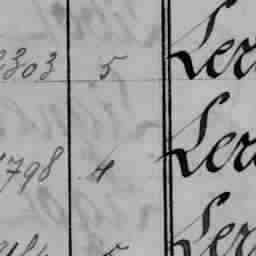 303 5 Ler
1798 4 Ler
Ler